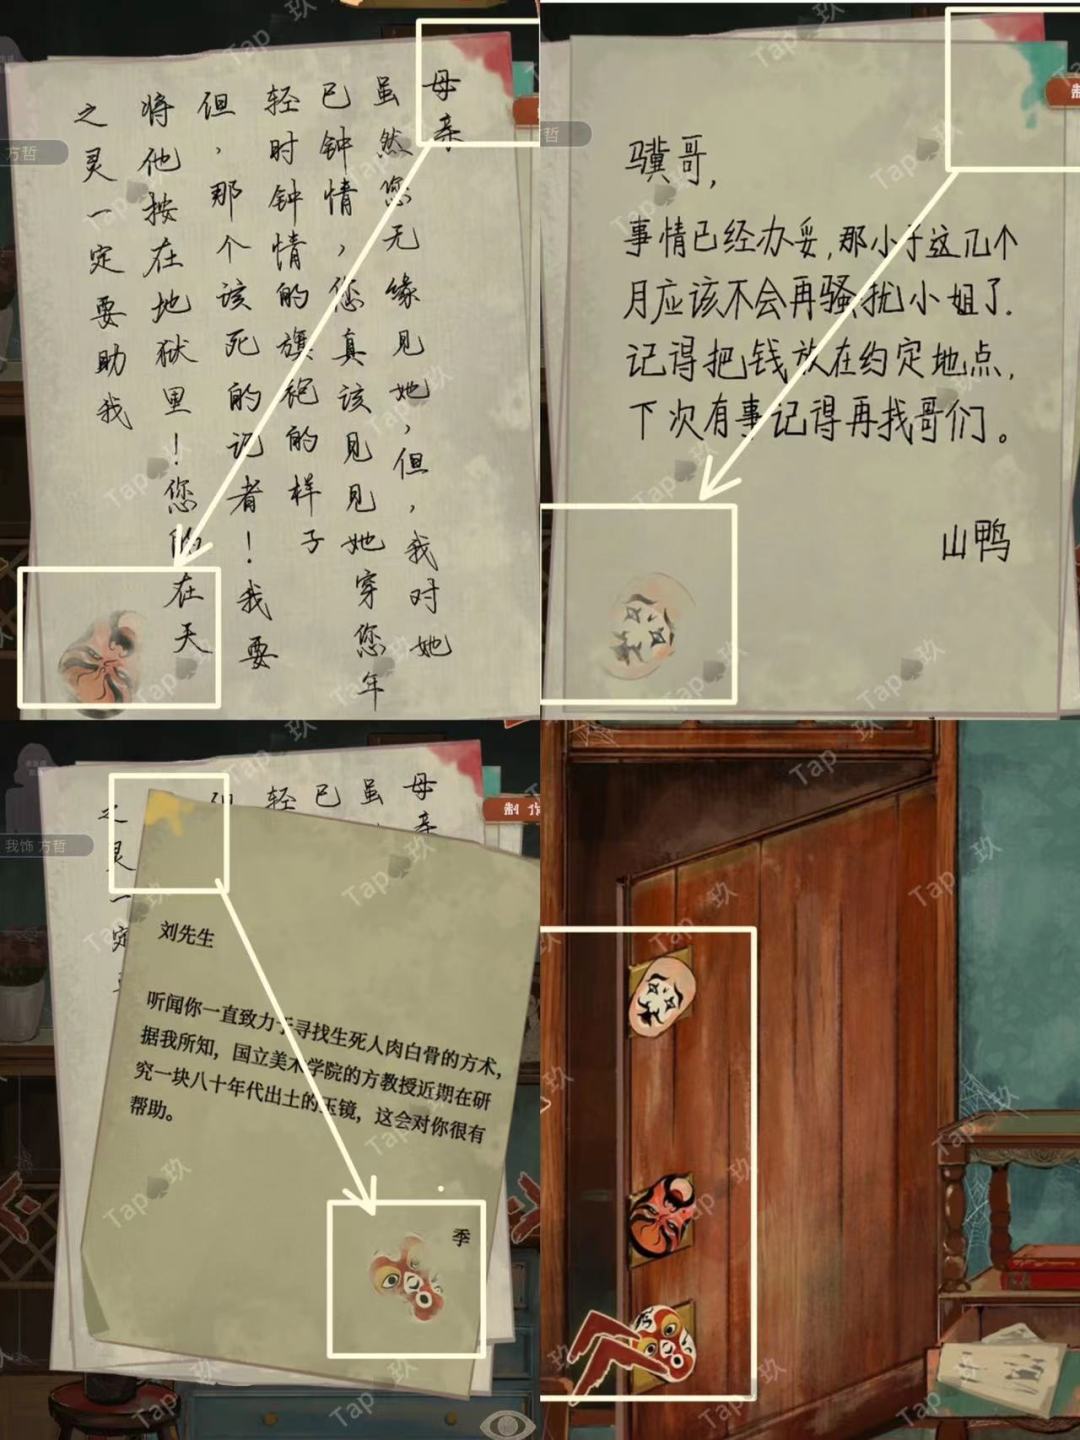 母亲
虽然您无缘见她，但，我对她
已钟情，您真该见见她穿您年
轻时钟情的旗袍的样子
但，那个该死的记者！我要
将他按在地狱里！您的在天
之灵一定要助我
方哲
骥哥，
事情已经办妥，那小子这几个
月应该不会再骚扰小姐了.
记得把钱放在约定地点，
下次有事记得再找哥们。
山鸭
哲
制
母亲
虽
已
轻
之灵一定
制作
我饰 方哲
刘先生
听闻你一直致力于寻找生死人肉白骨的方术，
据我所知，国立美术学院的方教授近期在研
究一块八十年代出土的玉镜，这会对你很有
帮助。
季
Tap 玖